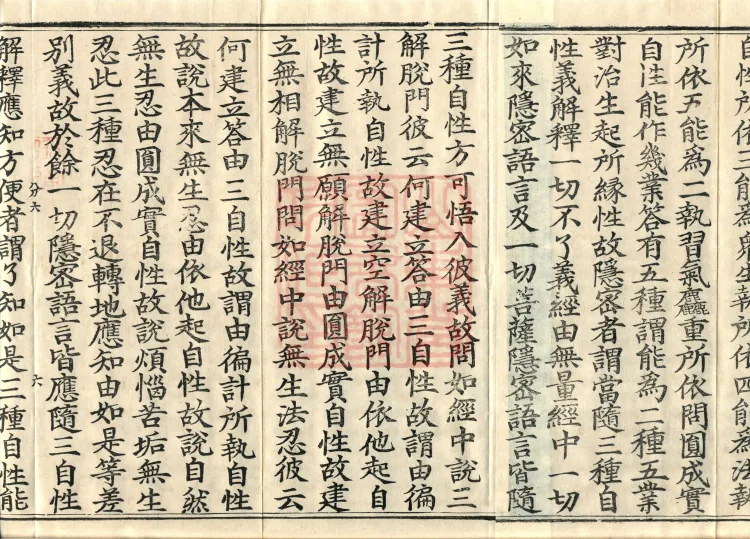 自性所依三能為眾生執所依四能為法執
所依五能為二執習氣麤重所依問圓成實
自性能作幾業答有五種謂能為二種五業
對治生起所緣性故隱密者謂當隨三種自
性義解釋一切不了義經由無量經中一切
如來隱密語言及一切菩薩隱密語言皆隨
三種自性方可悟入彼義故問如經中說三
解脫門彼云何建立答由三自性故謂由徧
計所執自性故建立空解脫門由依他起自
性故建立無願解脫門由圓成實自性故建
立無相解脫門問如經中說無生法忍彼云
何建立答由三自性故謂由徧計所執自性
故說本來無生忍由依他起自性故說自然
無生忍由圓成實自性故說煩惱苦垢無生
忍此三種忍在不退轉地應知由如是等差
別義故於餘一切隱密語言皆應隨三自性
分六 六
解釋應知方便者謂了知如是三種自性能